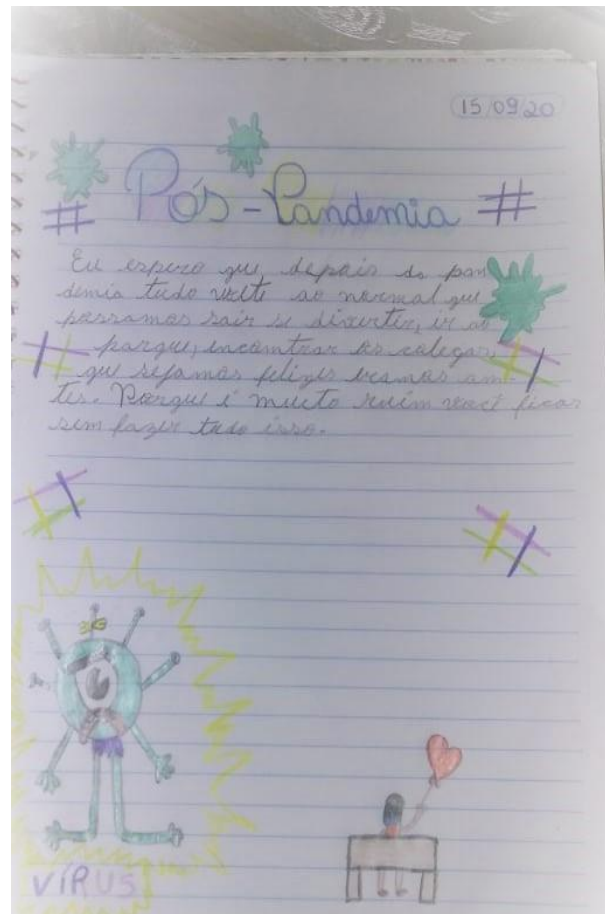 15/09/20
# Pós-Pandemia #
Eu espero que, depois da pan
demia tudo volte ao normal que
possamos sair se divertir, ir ao
parque, encontrar os colegas,
que sejamos felizes como an-
tes. Porque é muito ruim você ficar
sem fazer tudo isso.
VÍRUS